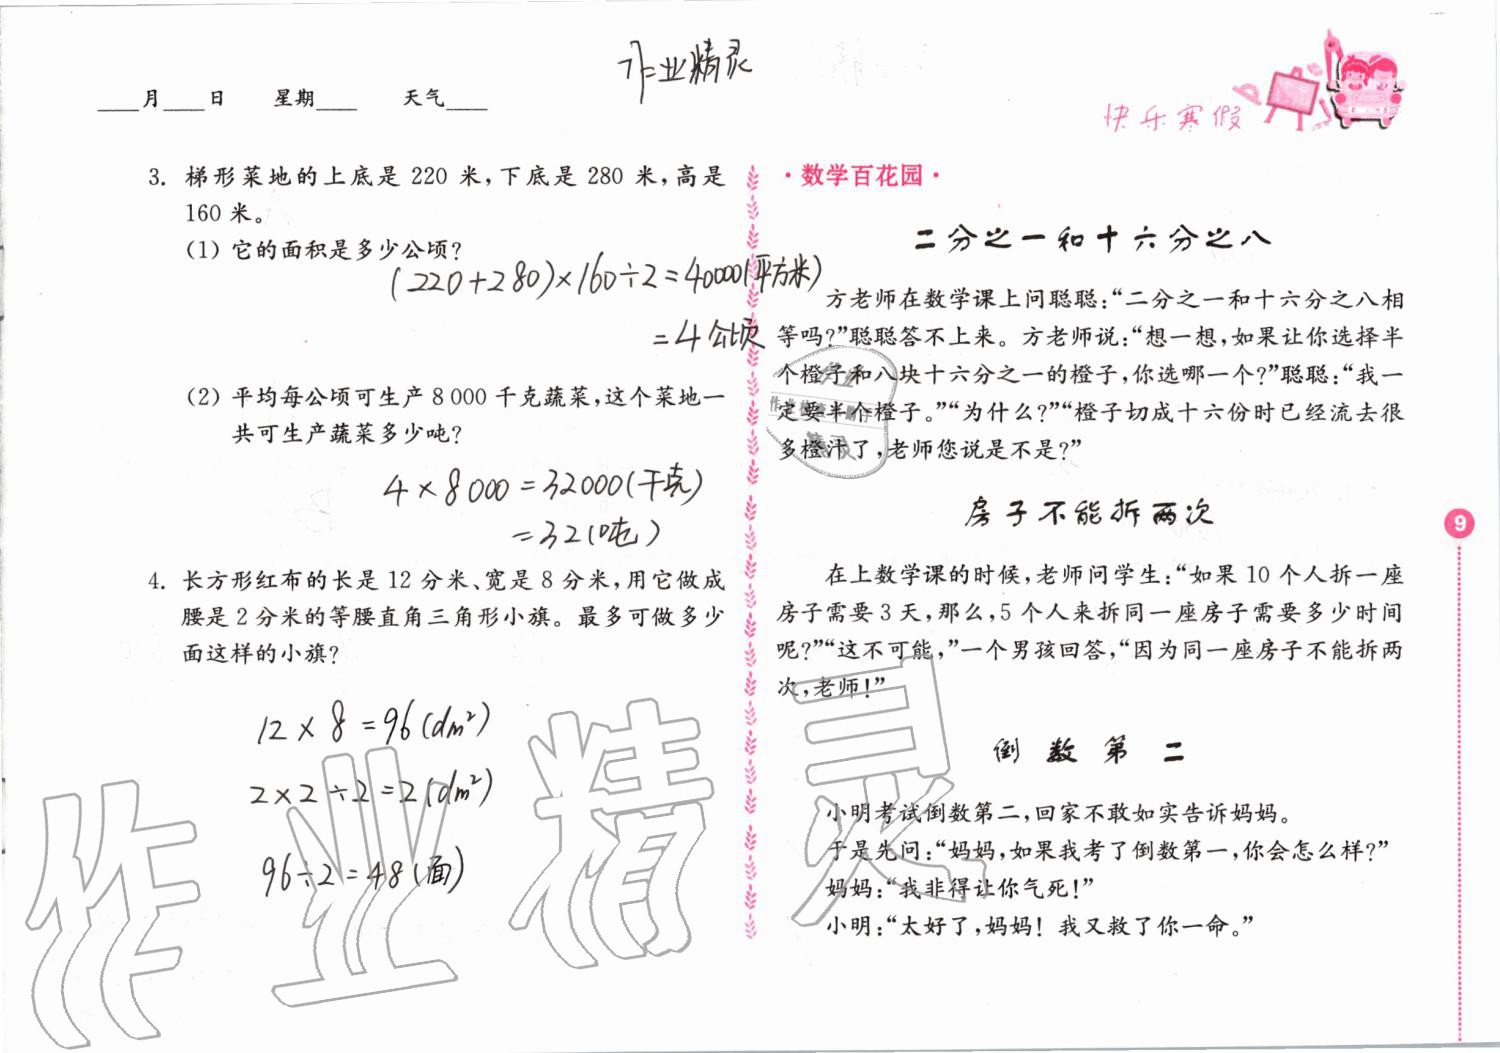 作业精灵
____月____日 星期____ 天气____
快乐寒假
3. 梯形菜地的上底是 220 米,下底是 280 米,高是
160 米。
(1) 它的面积是多少公顷?
(220+280)×160÷2=40000(平方米)
=4公顷
(2) 平均每公顷可生产 8 000 千克蔬菜,这个菜地一
共可生产蔬菜多少吨?
4×8000=32000(千克)
=32(吨)
4. 长方形红布的长是 12 分米、宽是 8 分米,用它做成
腰是 2 分米的等腰直角三角形小旗。最多可做多少
面这样的小旗?
12×8=96(dm²)
2×2÷2=2(dm²)
96÷2=48(面)
·数学百花园·
二分之一和十六分之八
方老师在数学课上问聪聪:“二分之一和十六分之八相
等吗?”聪聪答不上来。方老师说:“想一想,如果让你选择半
个橙子和八块十六分之一的橙子,你选哪一个?”聪聪:“我一
定要半个橙子。”“为什么?”“橙子切成十六份时已经流去很
多橙汁了,老师您说是不是?”
房子不能拆两次
在上数学课的时候,老师问学生:“如果 10 个人拆一座
房子需要 3 天,那么,5 个人来拆同一座房子需要多少时间
呢?”“这不可能,”一个男孩回答,“因为同一座房子不能拆两
次,老师!”
倒数第二
小明考试倒数第二,回家不敢如实告诉妈妈。
于是先问:“妈妈,如果我考了倒数第一,你会怎么样?”
妈妈:“我非得让你气死!”
小明:“太好了,妈妈!我又救了你一命。”
9
作业精灵